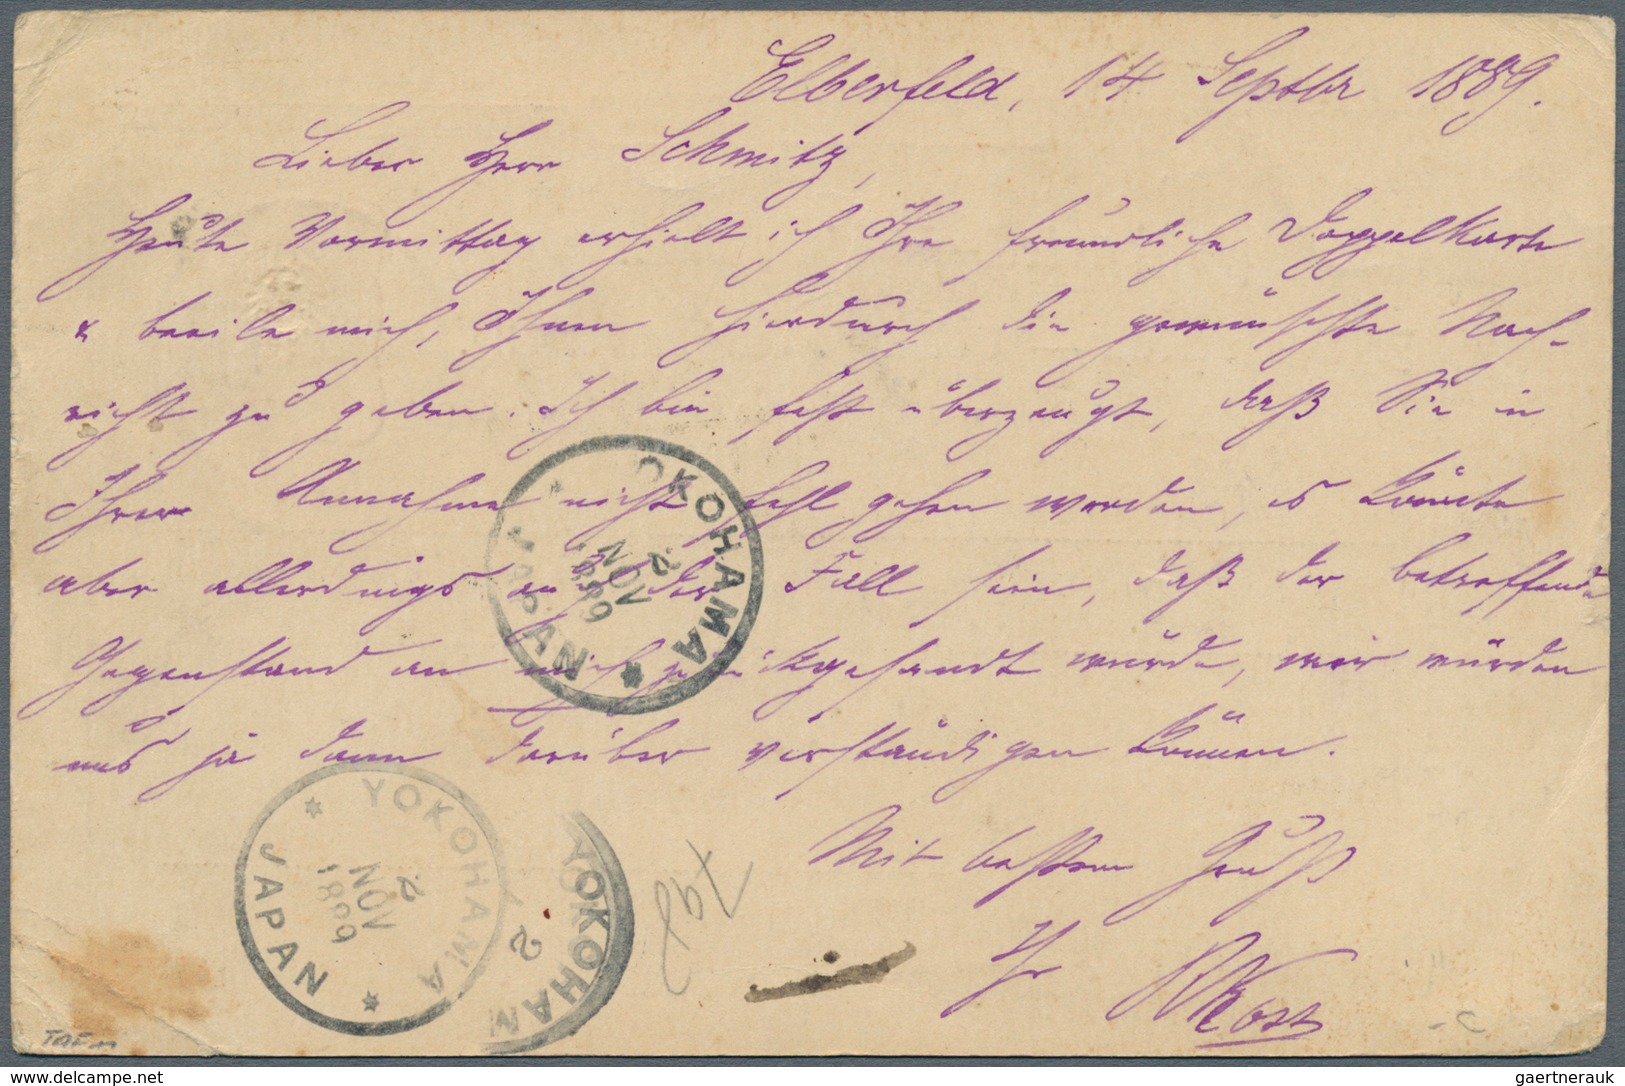 Elberfeld, 14 Septbr 1889.
Lieber Herr Schmitz,
Heute Vormittag erhielt ich Ihre freundliche Doppelkarte
& beeile mich, Ihnen hierdurch die gewünschte Nach-
richt zu geben. Ich bin fest überzeugt, daß Sie in
Ihrer Annahme nicht fehl gehen werden, es könnte
aber allerdings auch der Fall sein, daß der betreffende
Gegenstand an mich zurückgesandt würde, wir würden
uns ja dann darüber verständigen können.
Mit bestem Gruß
Ihr
YOKOHAMA
2
NOV
1899
JAPAN
YOKOHAMA
2
NOV
1899
JAPAN
YOKOHAM
2
gaertnerauk //